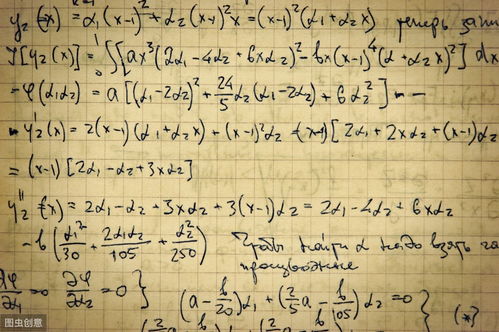 y₂(x) = α₁(x-1)² + α₂(x-1)²x = (x-1)²(α₁+α₂x) теперь
J[y₂(x)] = ∫[ax³(2α₁-4α₂+6xα₂)² - bx(x-1)⁴(α₁+α₂x)²] dx
= φ(α₁α₂) = a[(α₁-2α₂)² + 24/5 α₂(α₁-2α₂) + 6α₂²] - -
- y₂'(x) = 2(x-1)(α₁+α₂x) + (x-1)²α₂ = (x-1)[2α₁+2xα₂+(x-1)α₂
= (x-1)[2α₁-α₂+3xα₂]
y₂''(x) = 2α₁-α₂+3xα₂+3(x-1)α₂ = 2α₁-4α₂+6xα₂
- b(α₁²/30 + 2α₁α₂/105 + α₂²/250) Чтобы найти α надо взять
∂φ/∂α₁ = 0 ∂φ/∂α₂ = 0 }
(a - b/20)α₁ + (2/5 a - b/105)α₂ = 0 } (*)
图虫创意